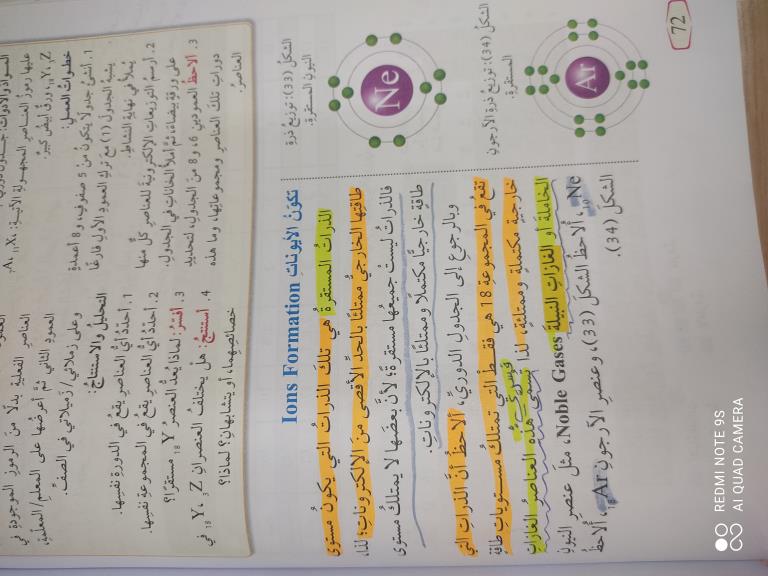 عليها رموز العناصر المجهولة الآتية:
خطوات العمل:
1. أنشئ جدولًا يتكون من 5 صفوف، و 8 أعمدة
يشبه الجدول (1) مع ترك العمود الأول فارغًا
يُملأ في نهاية النشاط.
2. أرسم التوزيعات الإلكترونية للعناصر كل منها
على ورقة بيضاء، ثم أملأ الخانات في الجدول.
3. ألاحظ العمودين 6، و 8 من الجدول، لتحديد
دورات تلك العناصر ومجموعاتها، وما هذه
العناصر.
العناصر الفعلية بدلًا من الرموز الموجودة في
العمود الثاني ثم أعرضها على المعلم/ المعلمة،
وعلى زملائي/ زميلاتي في الصف.
التحليل والاستنتاج:
1. أحدد أي العناصر يقع في الدورة نفسها.
2. أحدد أي العناصر يقع في المجموعة نفسها.
3. أفسر: لماذا يُعد العنصر 18Y مستقرًا؟
4. أستنتج: هل يختلف العنصران 3Z ، 18Y في
خصائصهما، أو يتشابهان؟ لماذا؟
تكوّنُ الأيوناتِ Ions Formation
الذراتُ المستقرةُ هي تلكَ الذراتُ التي يكونُ مستوى
طاقتِها الخارجيُّ ممتلئًا بالحدِّ الأقصى منَ الإلكتروناتِ؛ لذا،
فالذراتُ ليستْ جميعُها مستقرةً؛ لأنَّ بعضَها لا يمتلكُ مستوى
طاقةٍ خارجيًّا مكتملًا وممتلئًا بالإلكتروناتِ.
وبالرجوعِ إلى الجدولِ الدوريِّ، ألاحظُ أنَّ الذراتِ التي
تقعُ في المجموعةِ 18 هي فقط التي تمتلكُ مستوياتِ طاقةٍ
خارجيةٍ مكتملةٍ وممتلئةٍ، لذا تسمّى هذهِ العناصرُ الغازاتِ
الخاملةَ أو الغازاتِ النبيلةَ Noble Gases، مثلَ عنصرِ النيونِ
10Ne، ألاحظُ الشكلَ (33)، وعنصرِ الأرجونِ 18Ar، ألاحظُ
الشكلَ (34).
Ne
الشكلُ (33): توزيعُ ذرةِ
النيونِ المستقرةِ.
Ar
الشكلُ (34): توزيعُ ذرةِ الأرجونِ
المستقرةِ.
72
REDMI NOTE 9S
AI QUAD CAMERA